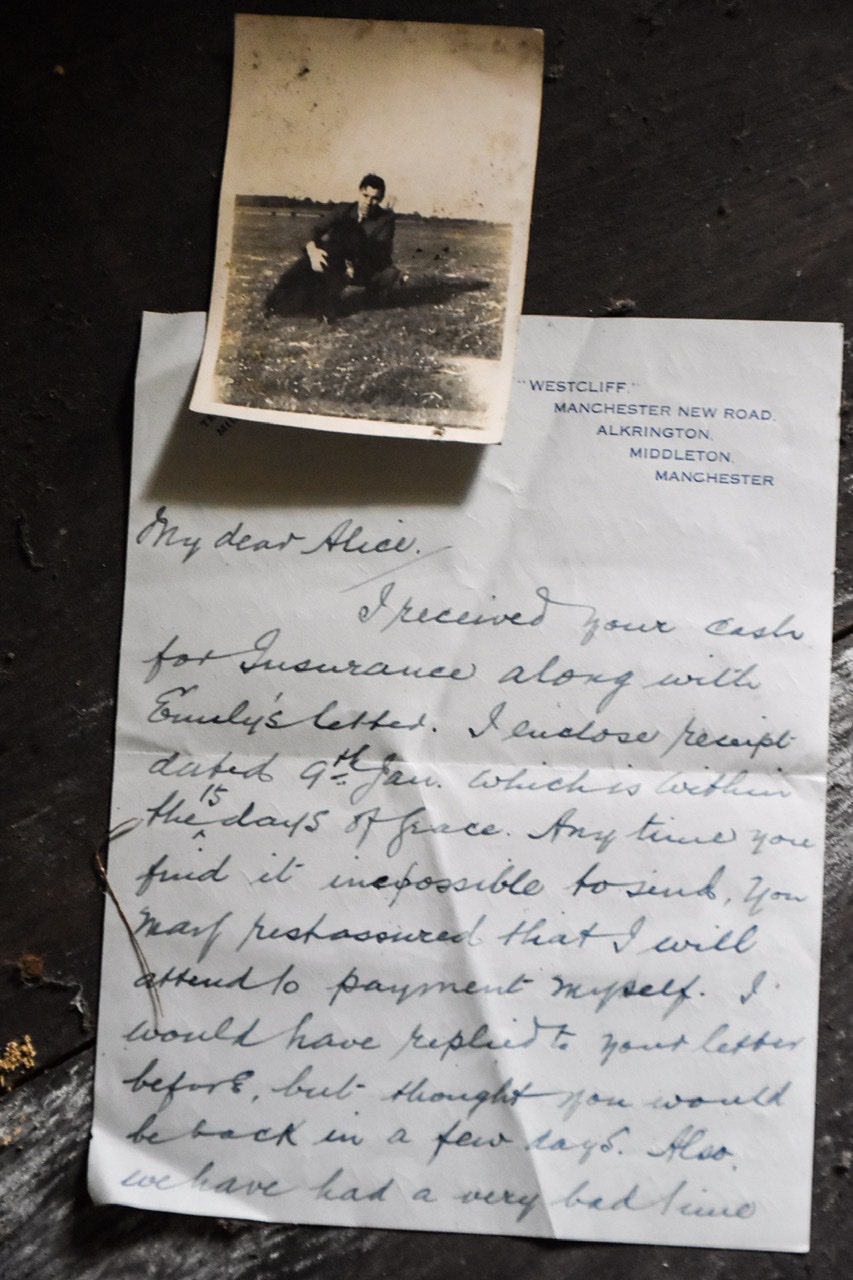 "WESTCLIFF."
MANCHESTER NEW ROAD,
ALKRINGTON,
MIDDLETON,
MANCHESTER
My dear Alice.
I received your cash
for Insurance along with
Emily's letter. I enclose receipt
dated 9th Jan. which is within
the 15 days of Grace. Any time you
find it impossible to send, you
may rest assured that I will
attend to payment myself. I
would have replied to your letter
before, but thought you would
be back in a few days. Also.
we have had a very bad time